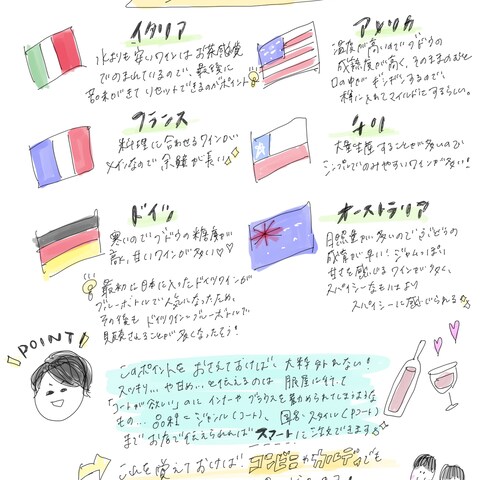 イタリア
水よりも安いワインはお茶感覚
でのまれているので、最後に
苦味がきてリセットできるのがポイント
アメリカ
温度が高いのでブドウの
成熟度が高く、そのままのむと
口の中が ギシギシするので、
樽に入れてマイルドにするらしい。
フランス
料理に合わせるワインが
メインなので 余韻が長い
チリ
大量生産することが多いので
シンプルでのみやすいワインが多い!
ドイツ
寒いのでブドウの糖度が
高く、甘いワインが多い♡♡
最初に日本に入ったドイツワインが
ブルーボトルで人気になったため、
その後も ドイツワイン=ブルーボトルで
見かけることが多くなったそう!
オーストラリア
日照量が多いのでぶどうの
成育が早い! ジャムっぽい
甘さを感じる ワインが多く、
スパイシーなものはより
スパイシーに感じられる
POINT!
このポイントを おさえておけば、大料外れない!
スッキリ… や甘め… と伝えるのは 服屋に行って
「コートが欲しい」のに インナーや
まれてしまうような
もの… 品種=ジャンル(コート)、国名=スタイル
までお店で伝えられれば スマートに注文できます
これを覚えておけば コンビニやカルディでも